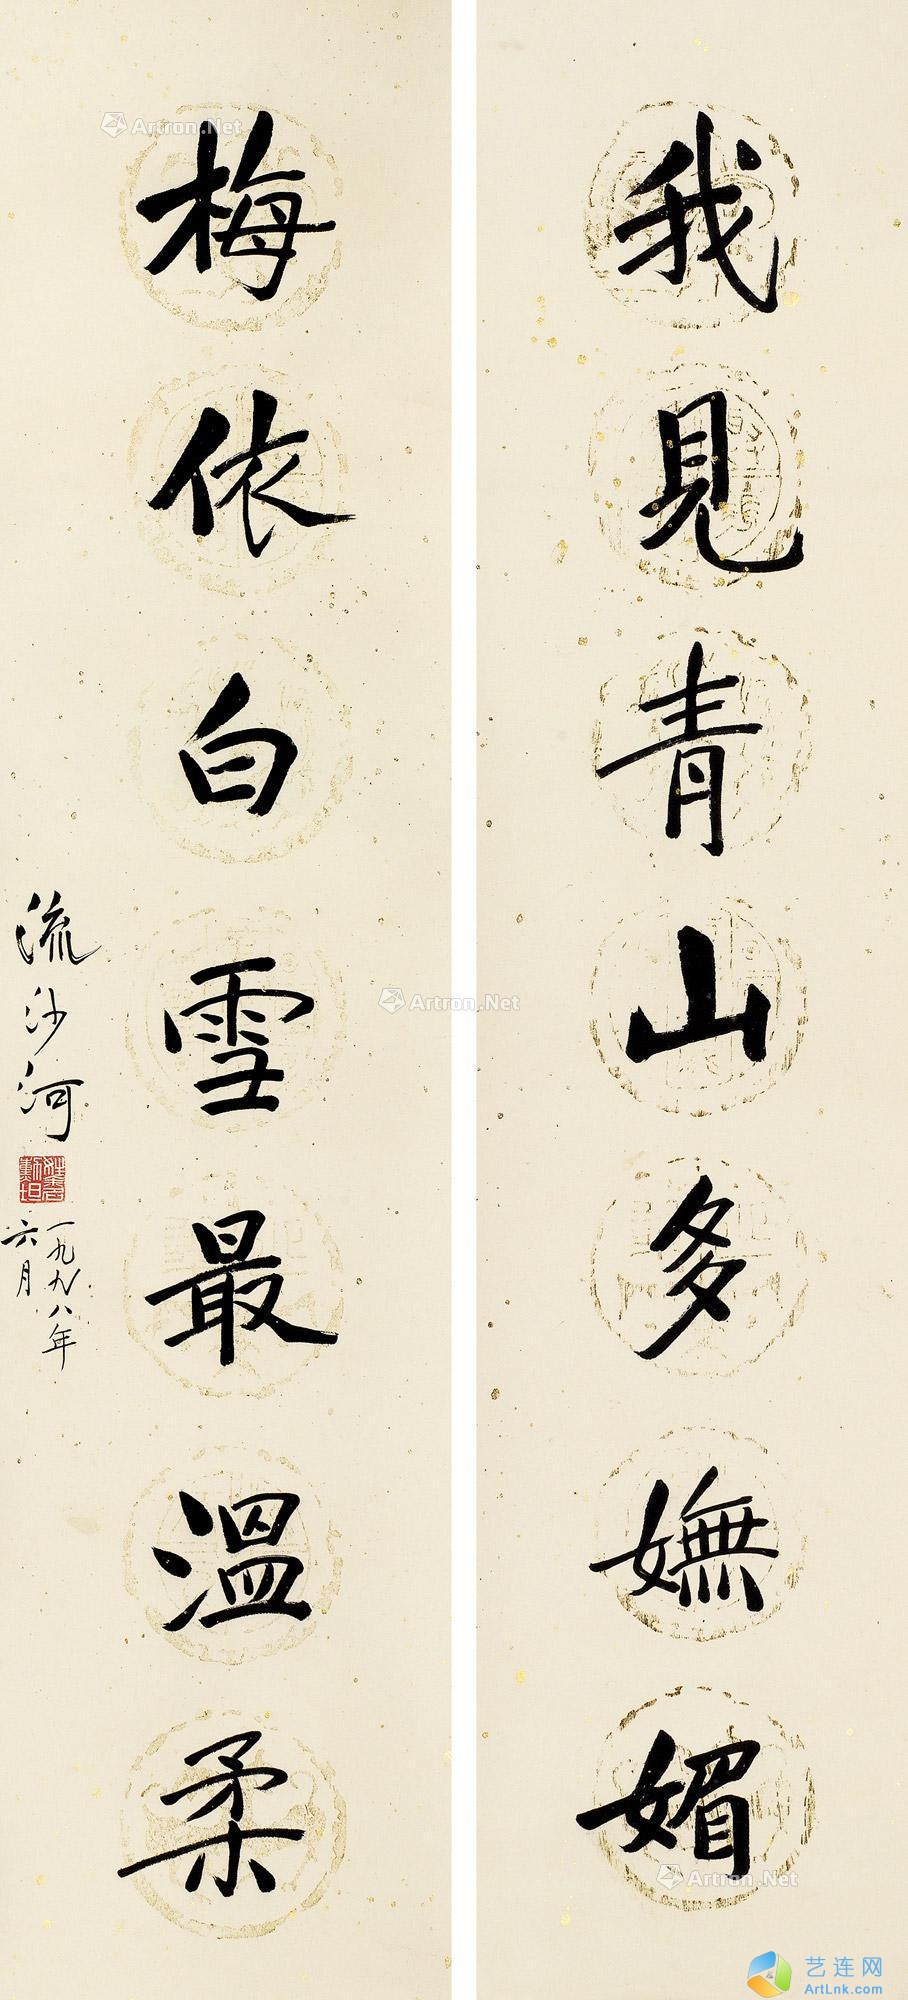 我見青山多嫵媚
梅依白雪最溫柔
流沙河
一九九八年
六月
Artron.Net
Artron.Net
Artron.Net
艺连网
ArtLnk.com